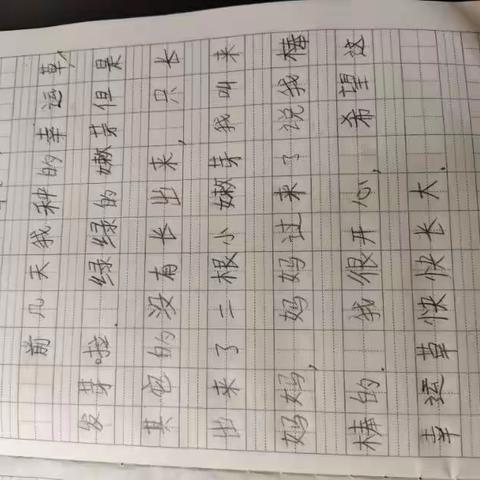 前几天我种的幸运草,
发芽。啦.绿绿的嫩芽但是
其它的没有长出来,只长
出来了二根小嫩芽我叫来
妈妈,妈妈过来了说我棒
棒的.我很开心,希望这
幸运草快快长大.